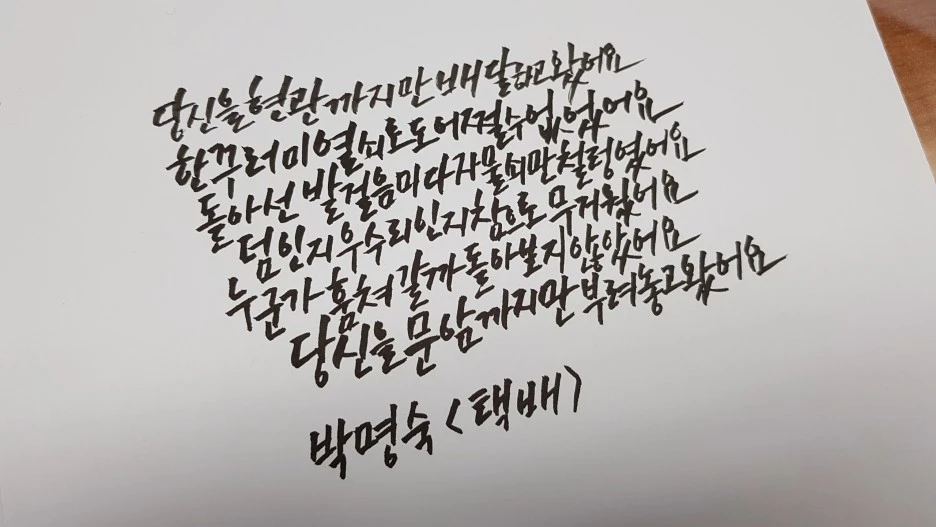 당신을 현관까지만 배달하고 왔어요
한 꾸러미 열쇠로도 어쩔 수 없었어요
돌아선 발걸음마다 자물쇠만 철렁였어요
덤인지 우수리인지 참으로 무거웠어요
누군가 훔쳐 갈까 돌아보지 않았어요
당신을 문 앞까지만 부려놓고 왔어요
박명숙 <택배>